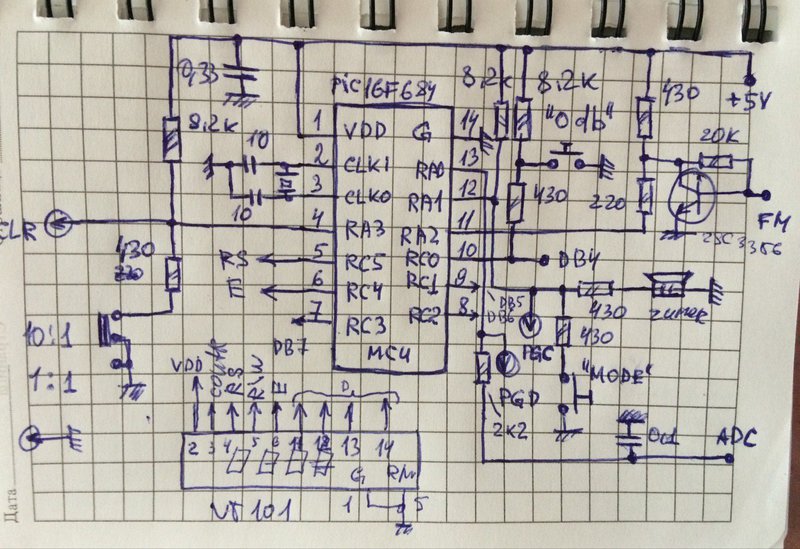 PiC16F684
0,33
8.2K
8.2K
8.2K
"0db"
430
+5V
20K
1 VDD G 14
2 CLK1 RA0 13
3 CLK0 RA1 12
4 RA3 RA2 11
5 RC5 RC0 10
6 RC4 RC1 9
7 RC3 RC2 8
MC4
10
10
430
220
FM
2SC3356
CLR
430
220
RS
E
DB7
DB4
DB5
DB6
430
430
PGC
PGD
2K2
"MODE"
10:1
1:1
VDD
CONTR
RS
R/W
E
D
2 3 4 5 6 11 12 13 14
G R/W
1 5
0.1
ADC
Дата